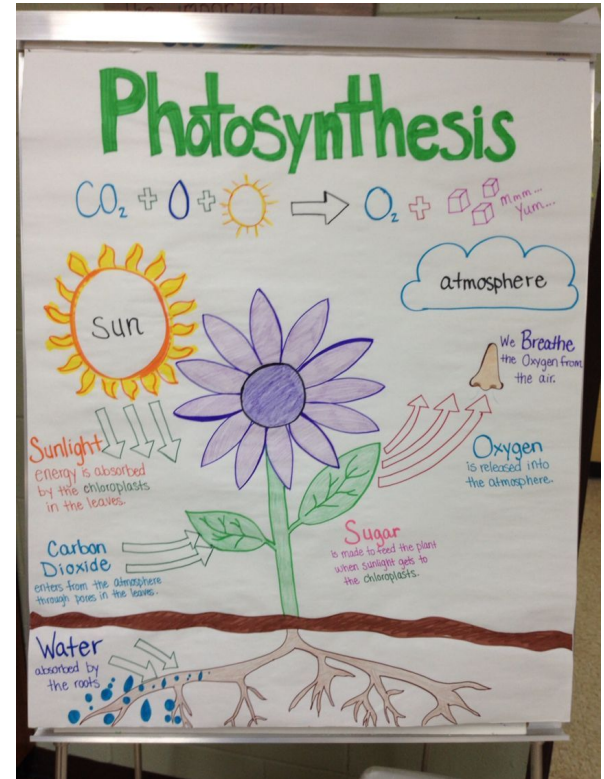 The important
Photosynthesis
CO₂ + + → O₂ + mmm...
Yum....
sun
atmosphere
We Breathe
the Oxygen from
the air.
Sunlight
energy is absorbed
by the chloroplasts
in the leaves.
Oxygen
is released into
the atmosphere.
Sugar
is made to feed the plant
when sunlight gets to
the chloroplasts.
Carbon
Dioxide
enters from the atmosphere
through pores in the leaves.
Water
absorbed by
the roots